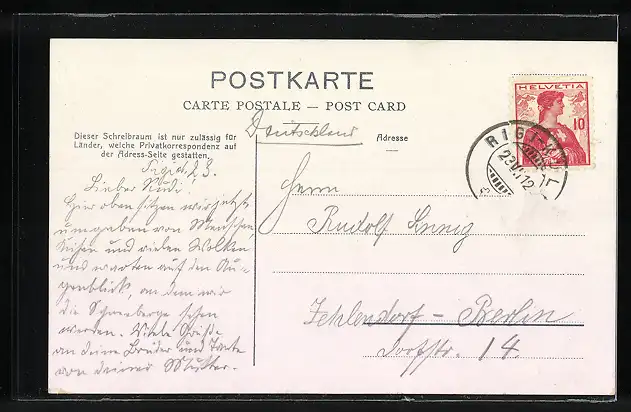 POSTKARTE
CARTE POSTALE — POST CARD
Dieser Schreibraum ist nur zulässig für
Länder, welche Privatkorrespondenz auf
der Adress-Seite gestatten.
Deutschland
Adresse
HELVETIA
10
RIGI
23. 12
23.
Lieber Rudi!
Hier oben sitzen wir jetzt
umgeben von Menschen,
und vielen Wolken
und warten auf den Au-
genblick, an dem wir
die Schneeberge sehen
werden. Viele Grüße
an deine Brüder und Tante
von deiner Mutter.
Herrn
Rudolf
Zehlendorf – Berlin
Dorfstr. 14